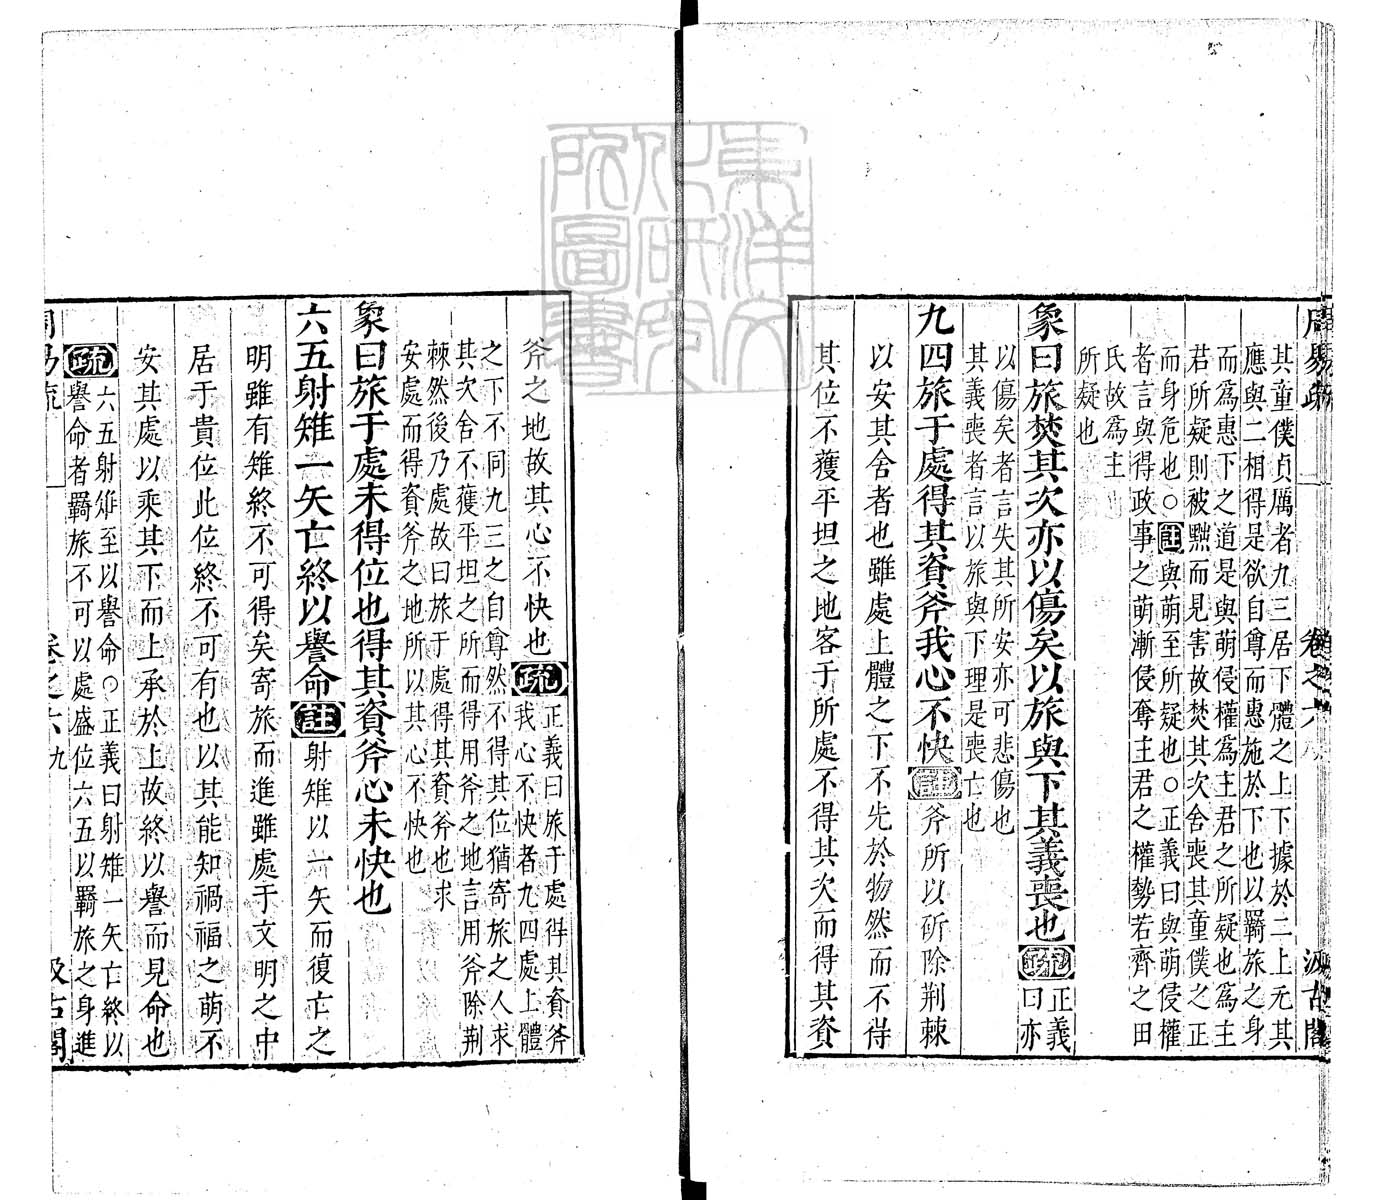 周易疏
卷之六
汲古閣
其童僕貞厲者九三居下體之上下據於二上无其
應與二相得是欲自尊而惠施於下也以羇旅之身
而爲惠下之道是與萌侵權爲主君之所疑也爲主
君所疑則被黜而見害故焚其次舍喪其童僕之正
而身危也○註與萌至所疑也○正義曰與萌侵權
者言與得政事之萌漸侵奪主君之權勢若齊之田
氏故爲主
所疑也
象曰旅焚其次亦以傷矣以旅與下其義喪也疏正義
曰亦
以傷矣者言失其所安亦可悲傷也
其義喪者言以旅與下理是喪亡也
九四旅于處得其資斧我心不快註斧所以斫除荆棘
以安其舍者也雖處上體之下不先於物然而不得
其位不獲平坦之地客于所處不得其次而得其資
斧之地故其心不快也疏正義曰旅于處得其資斧
我心不快者九四處上體
之下不同九三之自尊然不得其位猶寄旅之人求
其次舍不獲平坦之所而得用斧之地言用斧除荆
棘然後乃處故曰旅于處得其資斧也求
安處而得資斧之地所以其心不快也
象曰旅于處未得位也得其資斧心未快也
六五射雉一矢亡終以譽命註射雉以一矢而復亡之
明雖有雉終不可得矣寄旅而進雖處于文明之中
居于貴位此位終不可有也以其能知禍福之萌不
安其處以乘其下而上承於上故終以譽而見命也
疏六五射雉至以譽命○正義曰射雉一矢亡終以
譽命者羇旅不可以處盛位六五以羇旅之身進
周易疏
卷之六
九
汲古閣
東洋文化研究所圖書